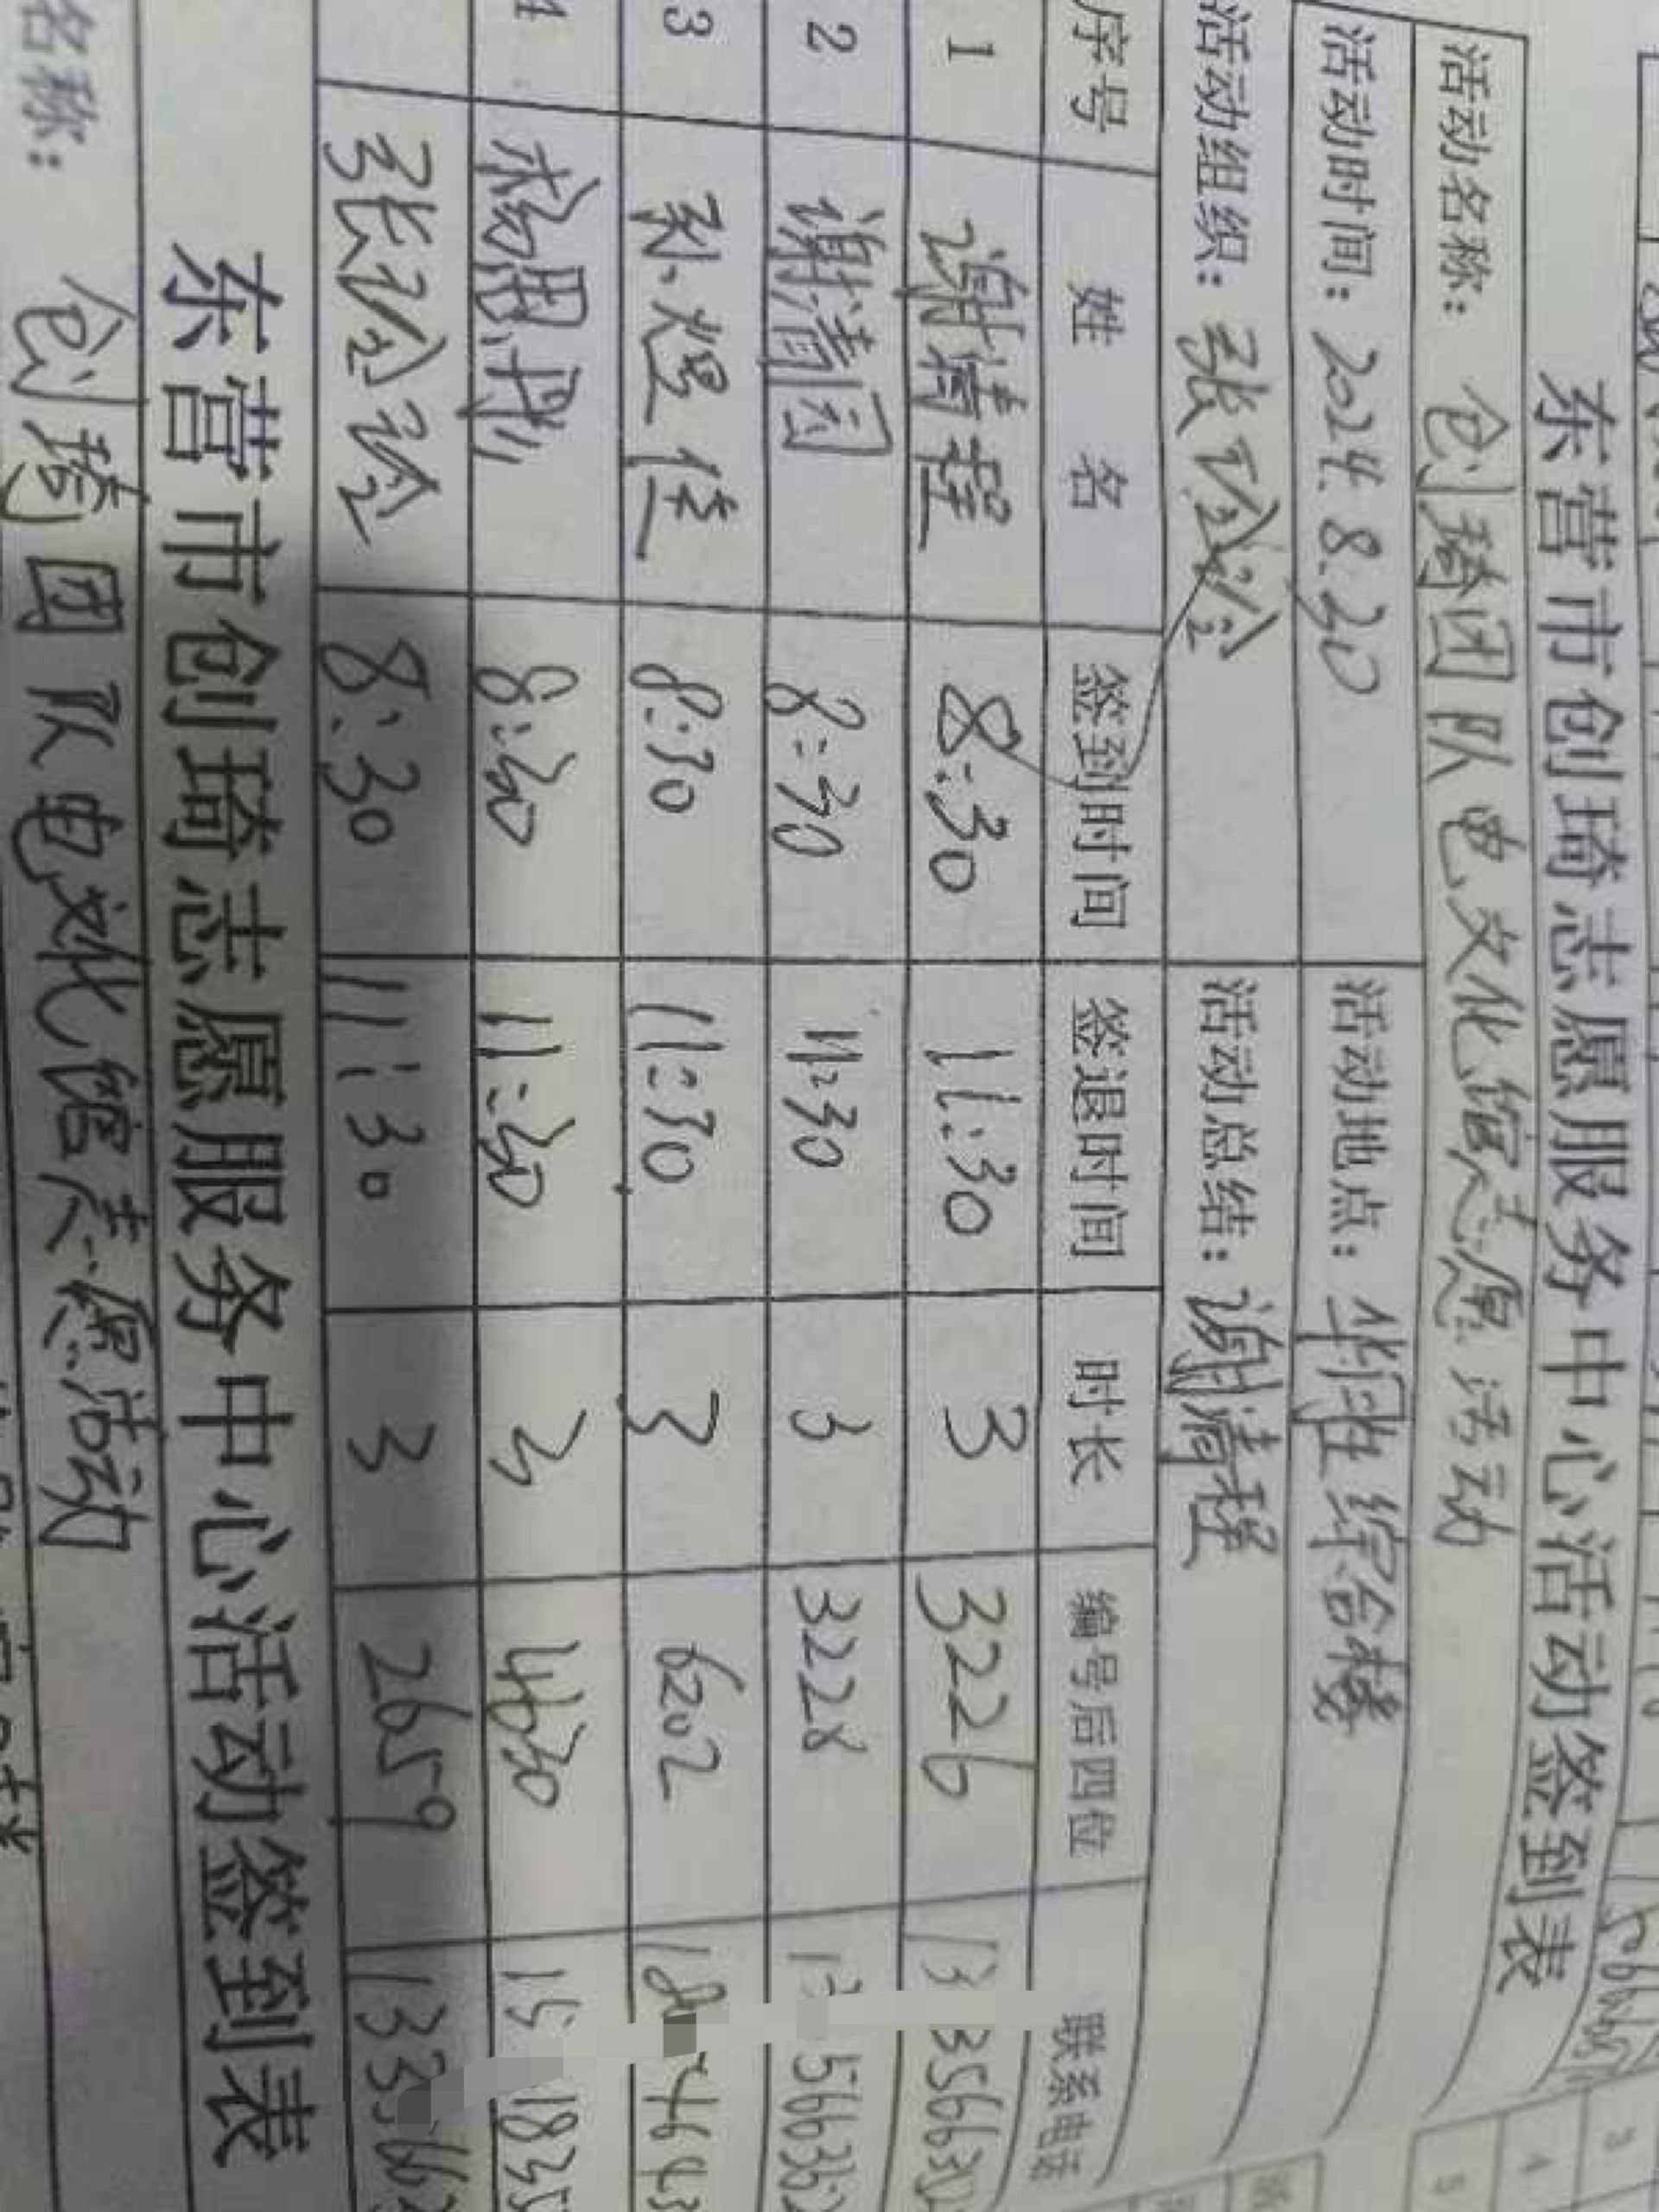 东营市创琦志愿服务中心活动签到表
活动名称：创琦团队电文化馆志愿活动
活动时间：2024.8.20 活动地点：综合楼
活动组织：张玲玲 活动总结：谢靖程
序号 姓名 签到时间 签退时间 时长 编号后四位 联系电话
1 谢靖程 8:30 11:30 3 3226 13 356632
2 谢清 8:30 11:30 3 3228 566362
3 佳 8:30 11:30 3 6202 18 74643
4 杨思彤 8:30 11:30 3 4630 15 1835
张玲玲 8:30 11:30 3 2659 13356
东营市创琦志愿服务中心活动签到表
名称：创琦团队电文化馆志愿活动